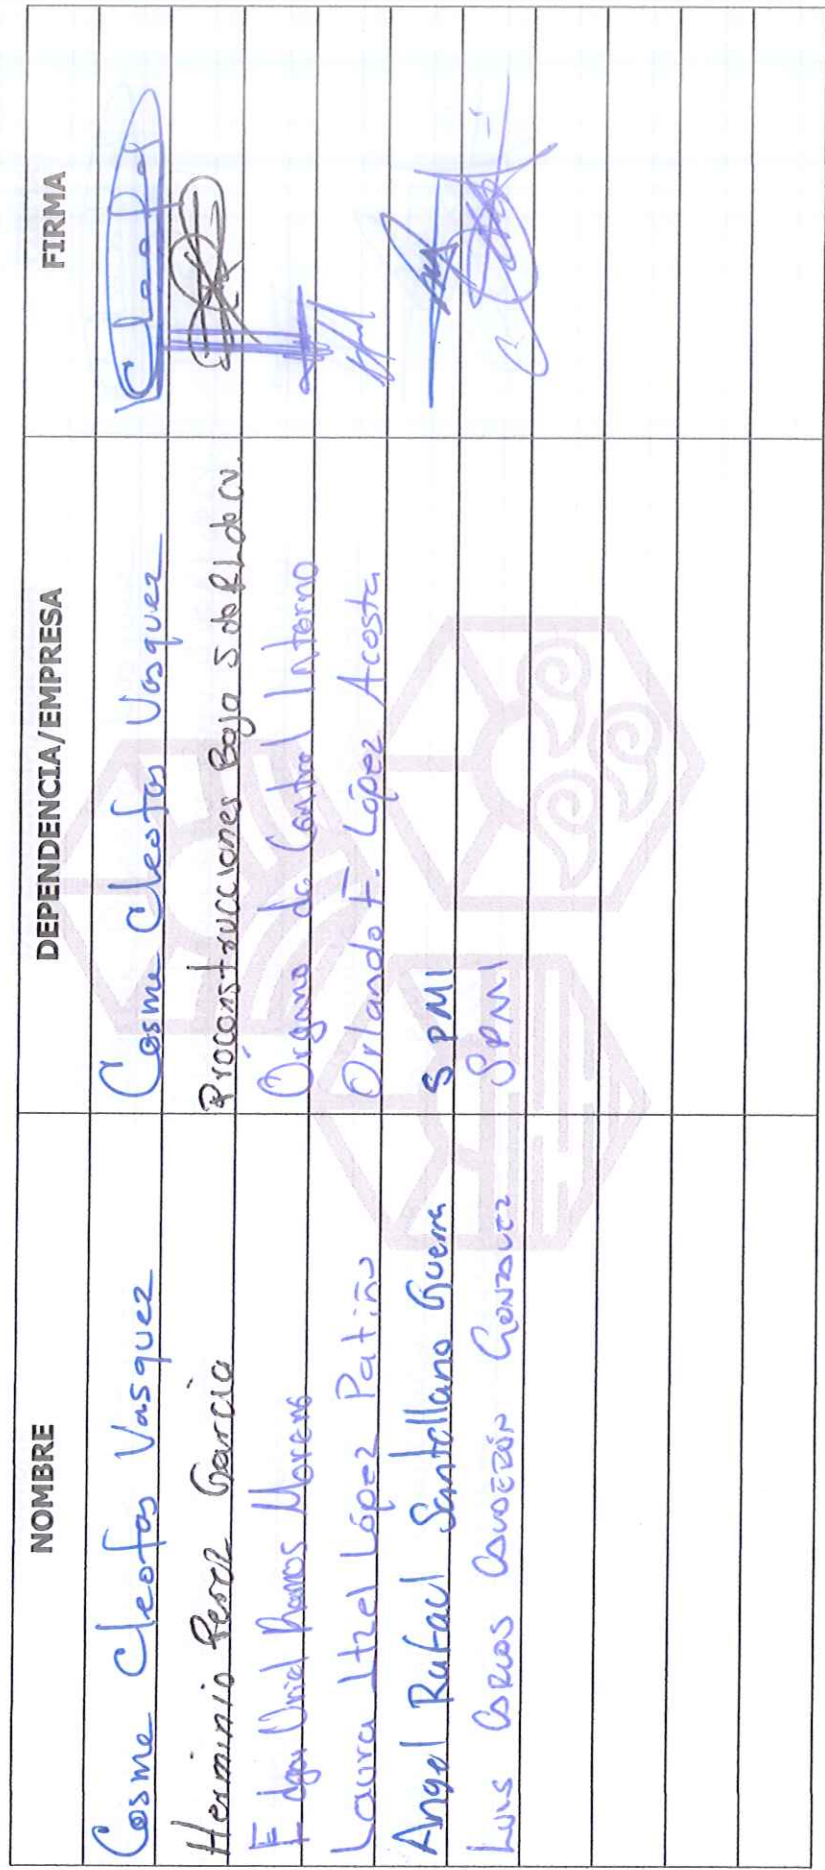 NOMBRE DEPENDENCIA/EMPRESA FIRMA
Cosme Cleofas Vasquez Cosme Cleofas Vasquez Cleofas
Herminio Perez Garcia Proconstrucciones Baja S de RL de CV.
Edgar Uriel Ramos Moreno Órgano de Control Interno
Laura Itzel López Patiño Orlando F. López Acosta
Angel Rafael Santellano Guerra SPMI
Luis Carlos Calderón González SPMI